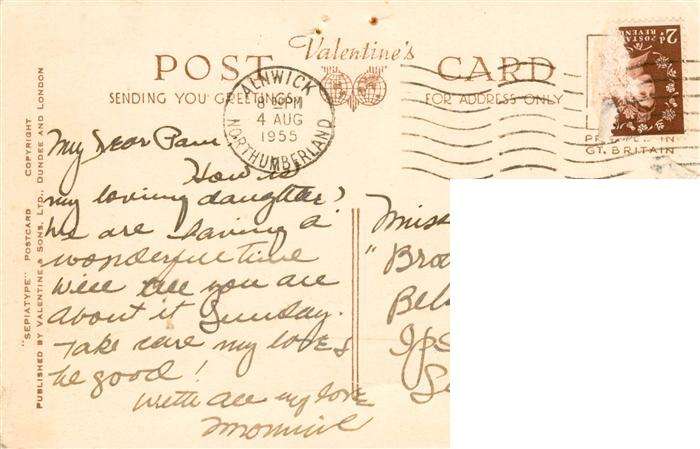 POST Valentine's CARD
SENDING YOU GREETINGS
FOR ADDRESS ONLY
ALNWICK
8 PM
4 AUG
1955
NORTHUMBERLAND
2d POSTAGE
REVENUE
PRINTED IN
GT. BRITAIN
"SEPIATYPE" POSTCARD COPYRIGHT
PUBLISHED BY VALENTINE & SONS, LTD., DUNDEE AND LONDON
My Dear Pam,
How is
my loving daughter?
We are having a
wonderful time
will tell you all
about it Sunday.
Take care my loves
be good!
With all my love
Mommie
Miss
"Bro
Bel
Ips